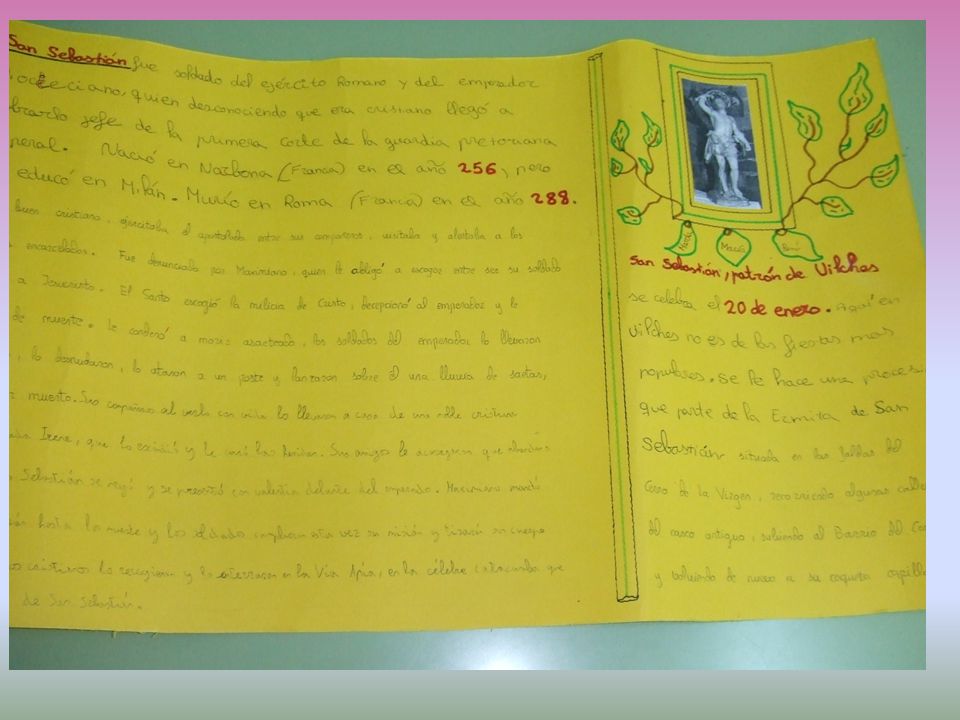 San Sebastián fue soldado del ejército Romano y del emperador
quien desconociendo que era cristiano llegó a
jefe de la primera Corte de la guardia pretoriana
Nació en Narbona (Francia) en el año 256, pero
educó en Milán. Murió en Roma (Francia) en el año 288.
buen cristiano, ejercitaba el apostolado entre sus compañeros, visitaba y alentaba a los
encarcelados. Fue denunciado por Maximiano, quien le obligó a escoger entre ser su soldado
a Jesucristo. El Santo escogió la milicia de Cristo, decepcionó al emperador y le
de muerte. Le condenó a morir asaeteado, los soldados del emperador lo llevaron
lo desnudaron, lo ataron a un poste y lanzaron sobre él una lluvia de saetas,
muerto. Sus compañeros al verlo con vida lo llevaron a casa de una noble cristiana
Irene, que lo escondió y le curó las heridas. Sus amigos le aconsejaron que
Sebastián se negó y se presentó con valentía delante del emperador. Maximiano mandó
hasta la muerte y los soldados cumplieron esta vez su misión y tiraron su cuerpo
cristianos lo recogieron y lo enterraron en la Vía Apia, en la célebre catacumba que
de San Sebastián.
María
San Sebastián, patrón de Vilches
se celebra el 20 de enero. Aquí en
Vilches no es de las fiestas mas
populares. Se le hace una
que parte de la Ermita de San
Sebastián situada en las faldas del
Cerro de la Virgen, recorriendo algunas
del casco antiguo, subiendo al Barrio del
y volviendo de nuevo a su coqueta